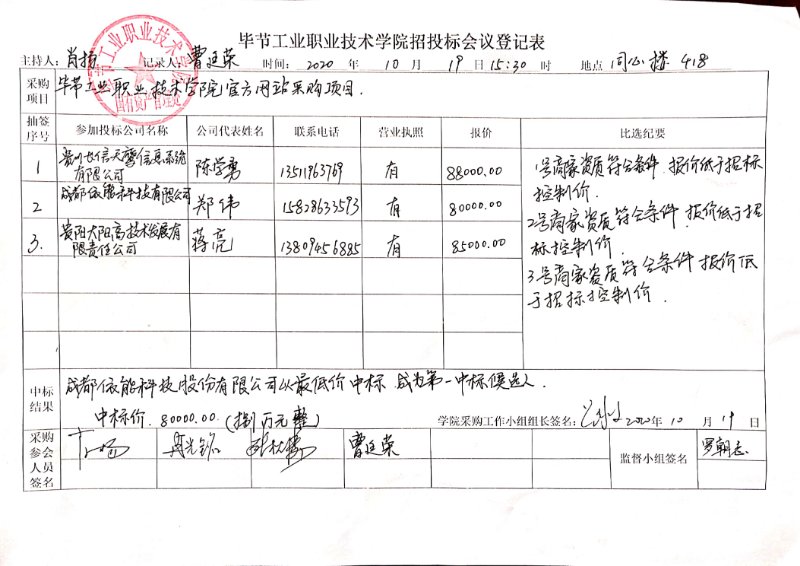 毕节工业职业技术学院招投标会议登记表
主持人 肖扬 记录人: 曹廷荣 时间: 2020 年 10 月 19 日 15:30 时 地点 同心楼 418
毕节工业职业技术学院
国有资产管理处
采购项目 毕节工业职业技术学院官方网站采购项目.
抽签序号 参加投标公司名称 公司代表姓名 联系电话 营业执照 报价 比选纪要
1 有限公司 陈学勇 13511963769 有 88000.00
2 成都依能科技有限公司 郑伟 15828633593 有 80000.00
3. 贵阳大阳高技术发展有限责任公司 蒋亮 13809456885 有 85000.00
1号商家资质符合条件.报价低于招标
控制价.
2号商家资质符合条件.报价低于招
标控制价.
3号商家资质符合条件.报价低
于招标控制价.
中标结果 成都依能科技股份有限公司以最低价中标.成为第一中标候选人.
中标价.80000.00.(捌万元整)
学院采购工作小组组长签名: 2020年10月19日
采购参会人员签名 曹廷荣 监督小组签名 罗朝志